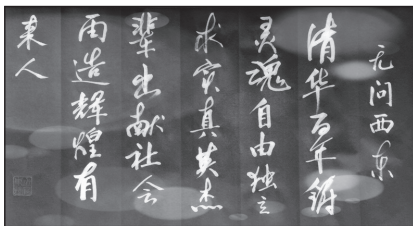 无问西东
清华百年铸
灵魂自由独立
求实真英杰
辈出献社会
再造辉煌有
来人